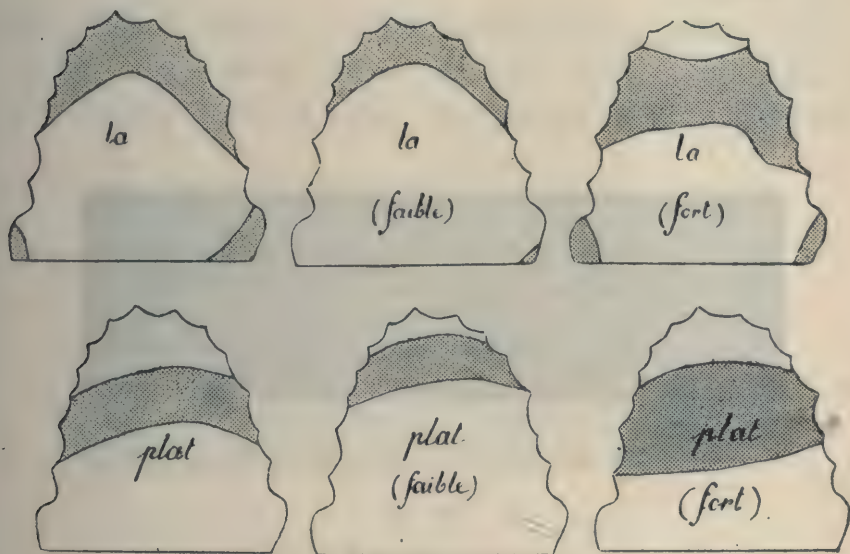 la
la
(faible)
la
(fort)
plat
plat.
(faible)
plat
(fort)